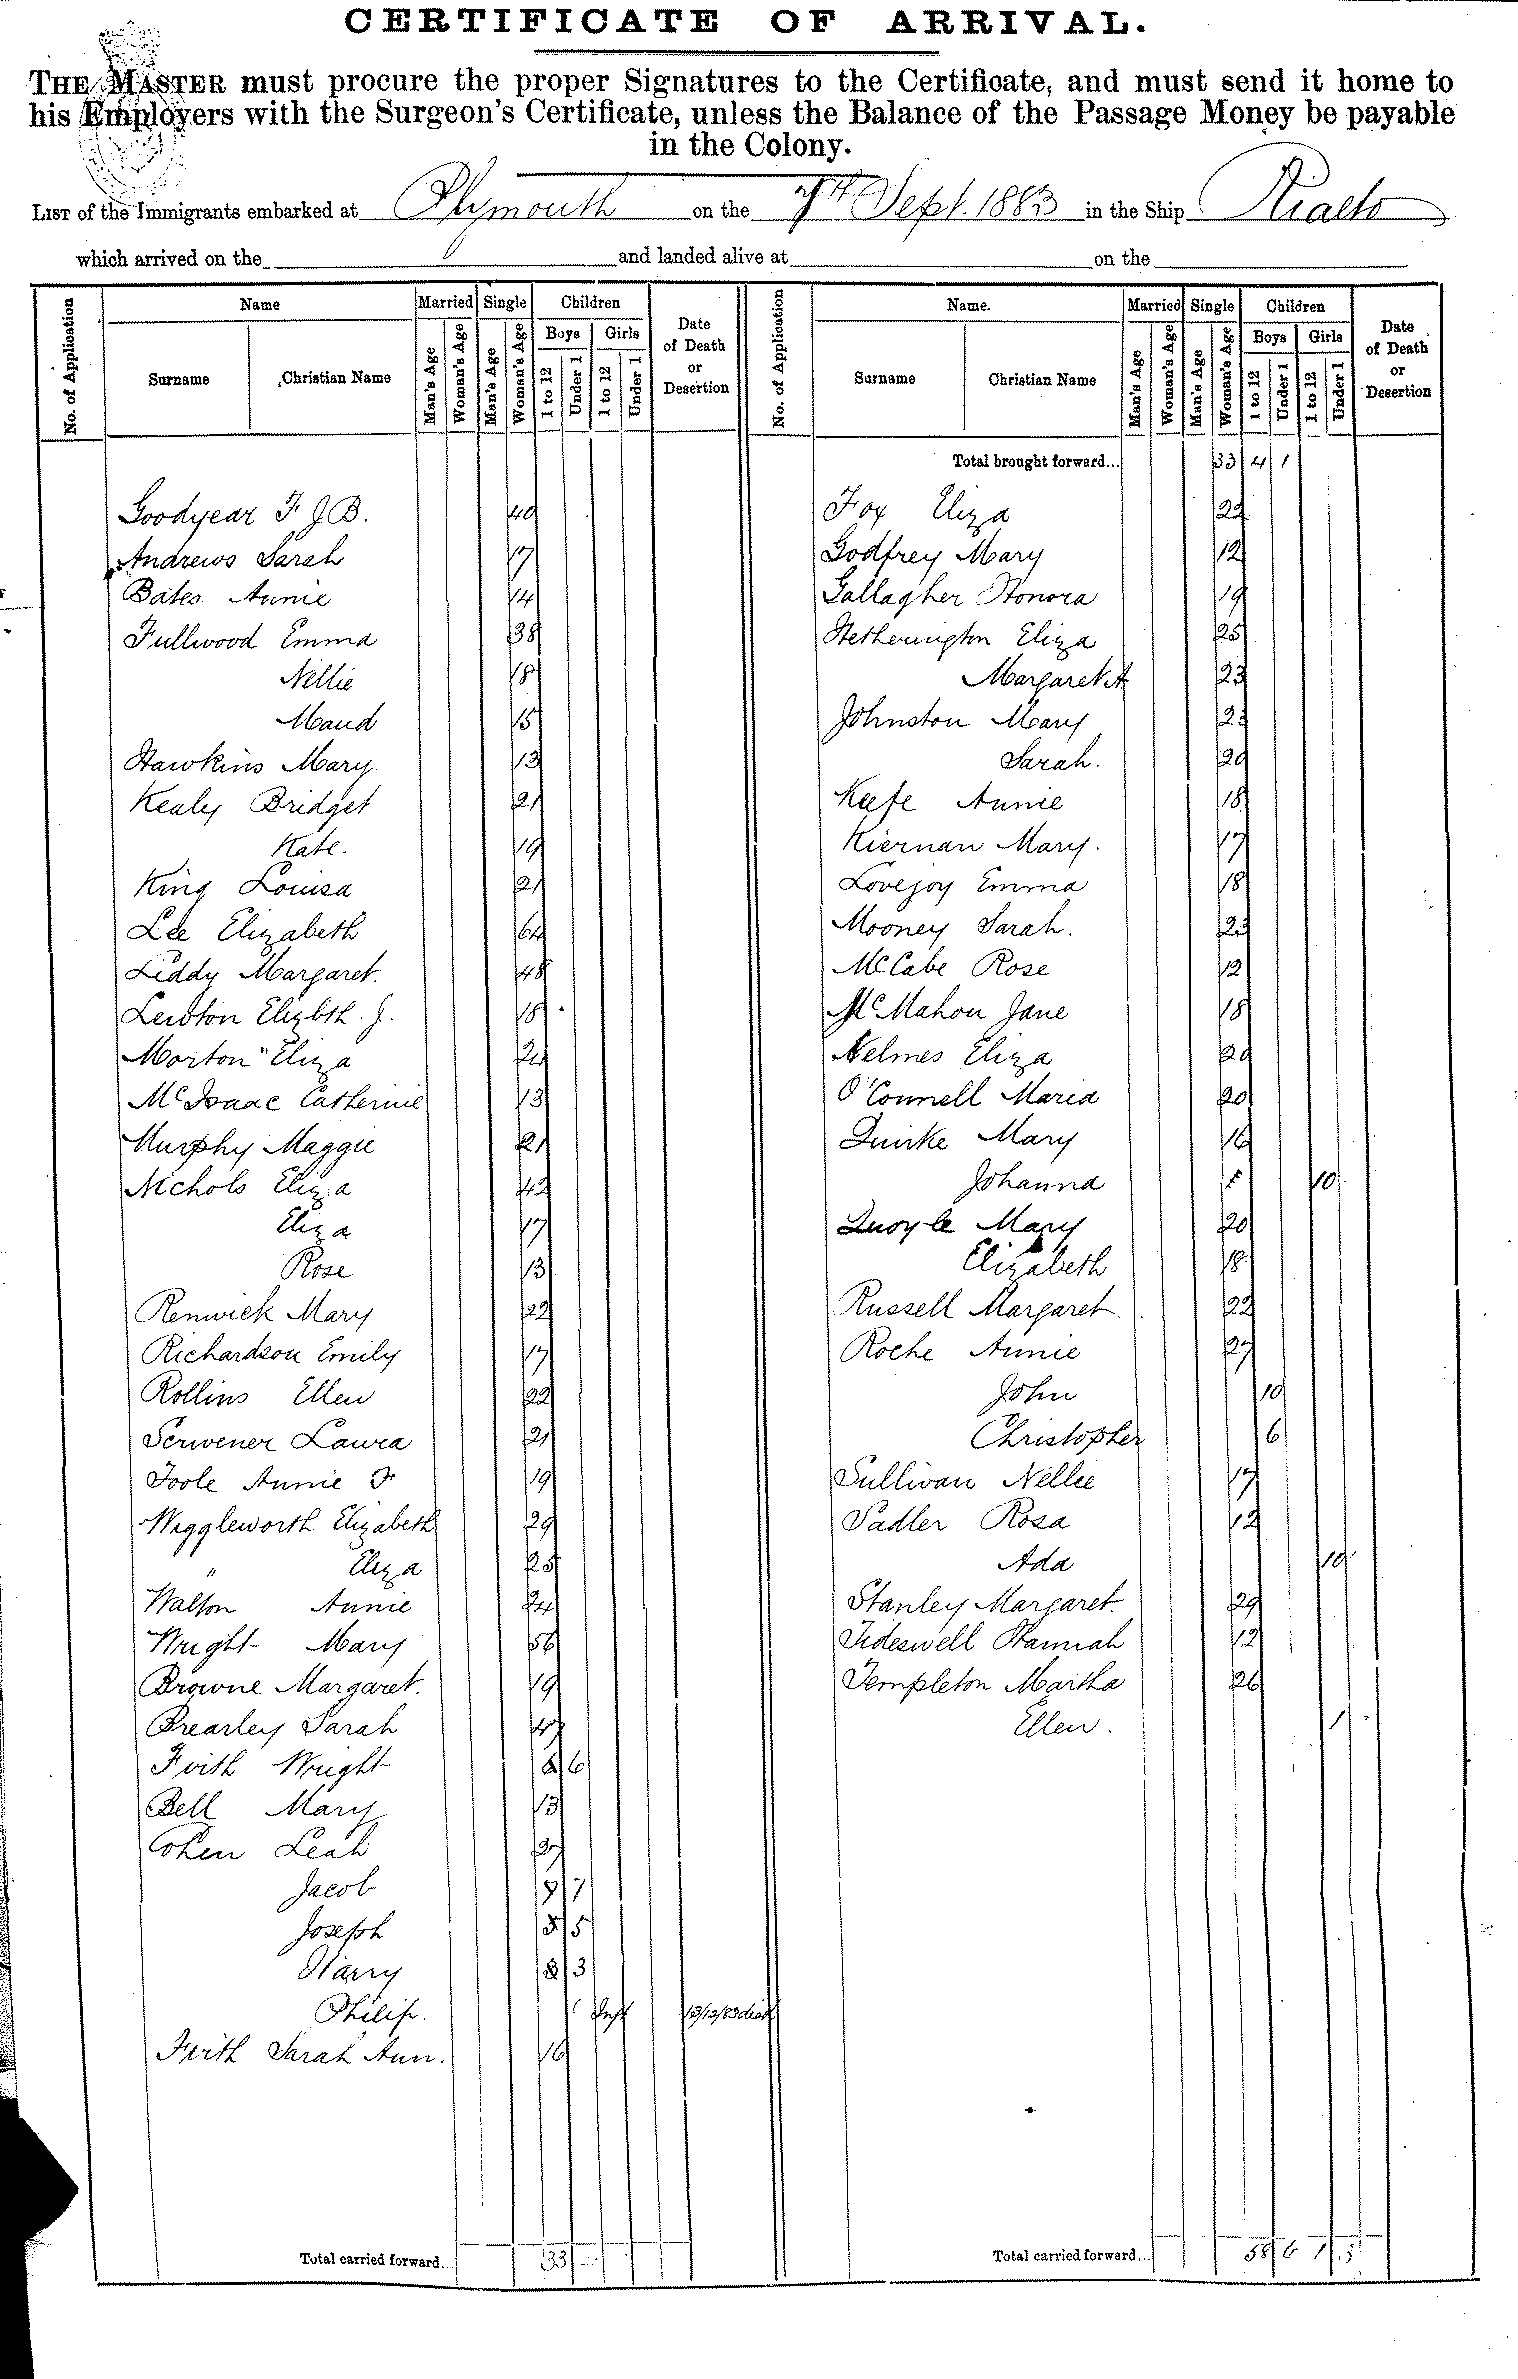 CERTIFICATE OF ARRIVAL.
THE MASTER must procure the proper Signatures to the Certificate, and must send it home to
his Employers with the Surgeon's Certificate, unless the Balance of the Passage Money be payable
in the Colony.
LIST of the Immigrants embarked at Plymouth on the 7th Sept. 1883 in the Ship Rialto
which arrived on the and landed alive at on the
No. of Application Name Married Single Children Date of Death or Desertion
Surname Christian Name Man's Age Woman's Age Man's Age Woman's Age Boys Girls
1 to 12 Under 1 1 to 12 Under 1
Goodyear F J B. 40
Andrews Sarah 17
Bates Annie 14
Fullwood Emma 38
Nellie 18
Maud 15
Hawkins Mary 13
Kealy Bridget 21
Kate. 19
King Louisa 21
Lee Elizabeth 64
Liddy Margaret. 48
Lewton Elizbth. J. 18
Morton Eliza 24
McIsaac Catherine 13
Murphy Maggie 21
Nichols Eliza 42
Eliza 17
Rose 13
Renwick Mary 22
Richardson Emily 17
Rollins Ellen 22
Scrivener Laura 21
Toole Annie F 19
Wiggleworth Elizabeth 29
" Eliza 25
Walton Annie 24
Wright Mary 56
Browne Margaret. 19
Brearley Sarah 47
Frith Wright 6
Bell Mary 13
Cohen Leah 27
Jacob 7
Joseph 5
Harry 3
Philip. Inft 13/12/83 died
Frith Sarah Ann. 16
Total carried forward... 33
No. of Application Name. Married Single Children Date of Death or Desertion
Surname Christian Name Man's Age Woman's Age Man's Age Woman's Age Boys Girls
1 to 12 Under 1 1 to 12 Under 1
Total brought forward... 33 4 1
Fox Eliza 22
Godfrey Mary 12
Gallagher Honora 19
Hetherington Eliza 25
Margaret A 23
Johnston Mary 23
Sarah. 20
Keefe Annie 18
Kiernan Mary. 17
Lovejoy Emma 18
Mooney Sarah. 23
McCabe Rose 12
McMahon Jane 18
Nelmes Eliza 20
O'Connell Maria 20
Quirke Mary 16
Johanna 10
Quoyle Mary 20
Elizabeth 18
Russell Margaret 22
Roche Annie 27
John 10
Christopher 6
Sullivan Nellie 17
Sadler Rosa 12
Ada 10
Stanley Margaret. 29
Tideswell Hannah 12
Templeton Martha 26
Ellen. 1
Total carried forward... 58 6 1 3